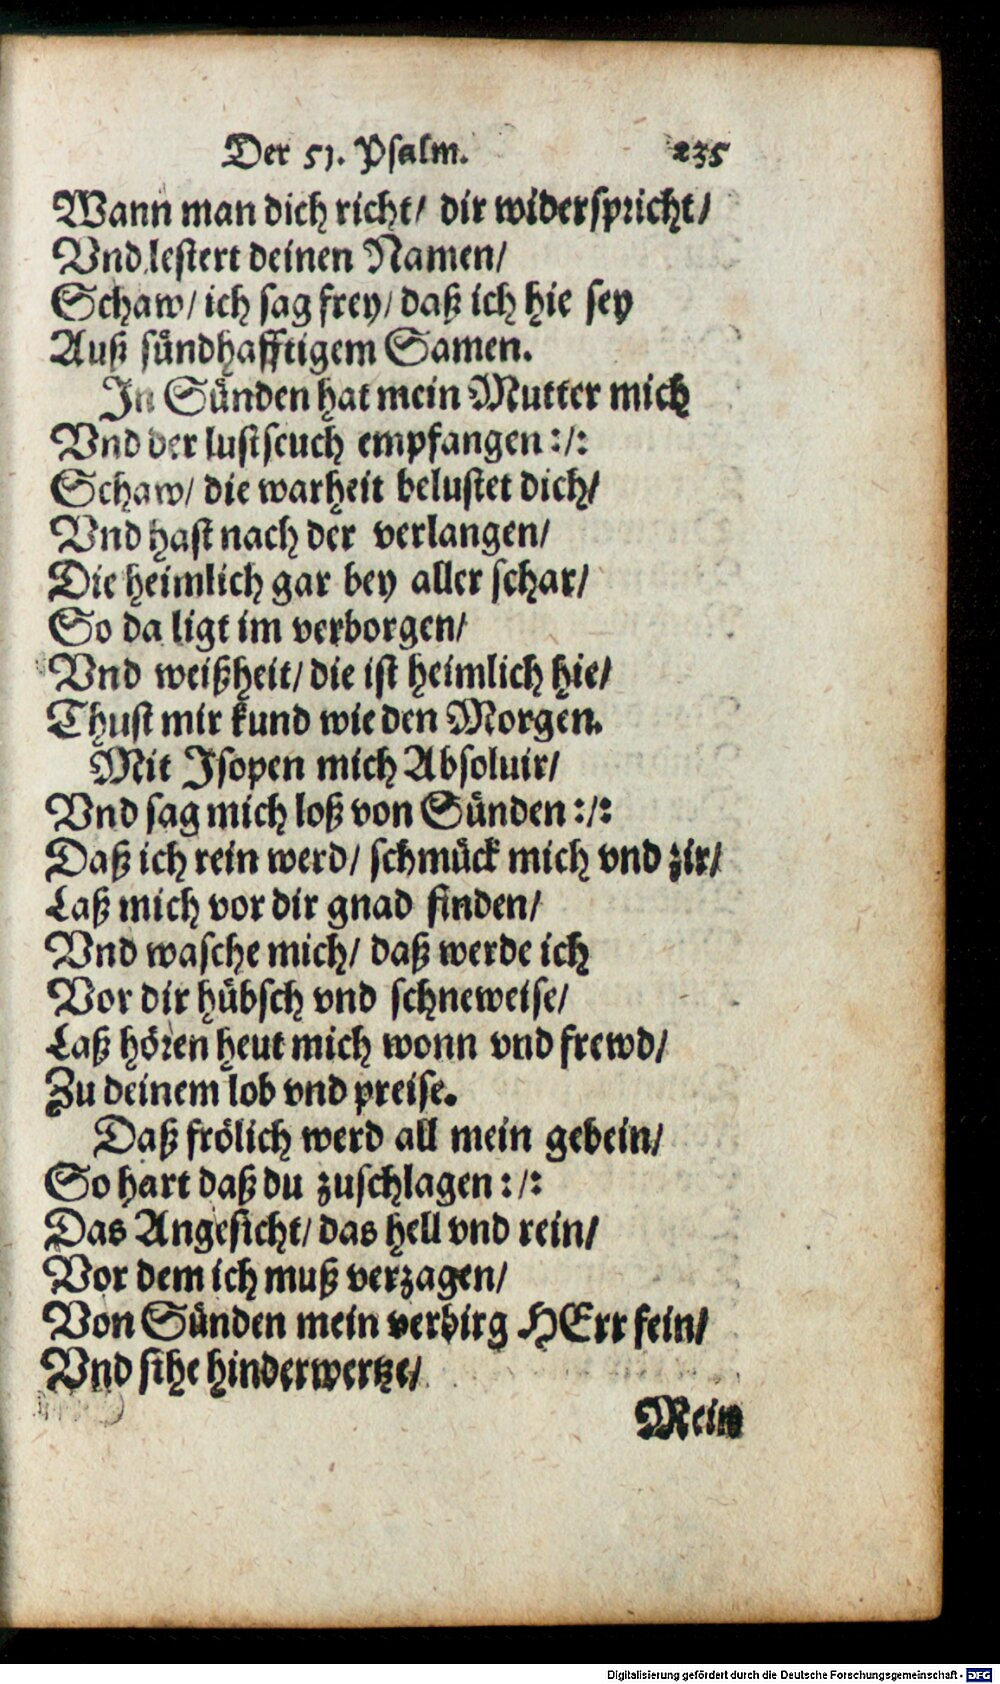 Der 51. Psalm. 235
Wann man dich richt/ dir widerspricht/
Vnd lestert deinen Namen/
Schaw/ ich sag frey/ daß ich hie sey
Auß sündhafftigem Samen.
In Sünden hat mein Mutter mich
Vnd der lustseuch empfangen :/:
Schaw/ die warheit belustet dich/
Vnd hast nach der verlangen/
Die heimlich gar bey aller schar/
So da ligt im verborgen/
Vnd weißheit/ die ist heimlich hie/
Thust mir kund wie den Morgen.
Mit Isopen mich Absoluir/
Vnd sag mich loß von Sünden :/:
Daß ich rein werd/ schmück mich vnd zir/
Laß mich vor dir gnad finden/
Vnd wasche mich/ daß werde ich
Vor dir hübsch vnd schneweise/
Laß hören heut mich wonn vnd frewd/
Zu deinem lob vnd preise.
Daß frölich werd all mein gebein/
So hart daß du zuschlagen :/:
Das Angesicht/ das hell vnd rein/
Vor dem ich muß verzagen/
Von Sünden mein verbirg HErr fein/
Vnd sihe hinderwertze/
Mein
Digitalisierung gefördert durch die Deutsche Forschungsgemeinschaft - DFG